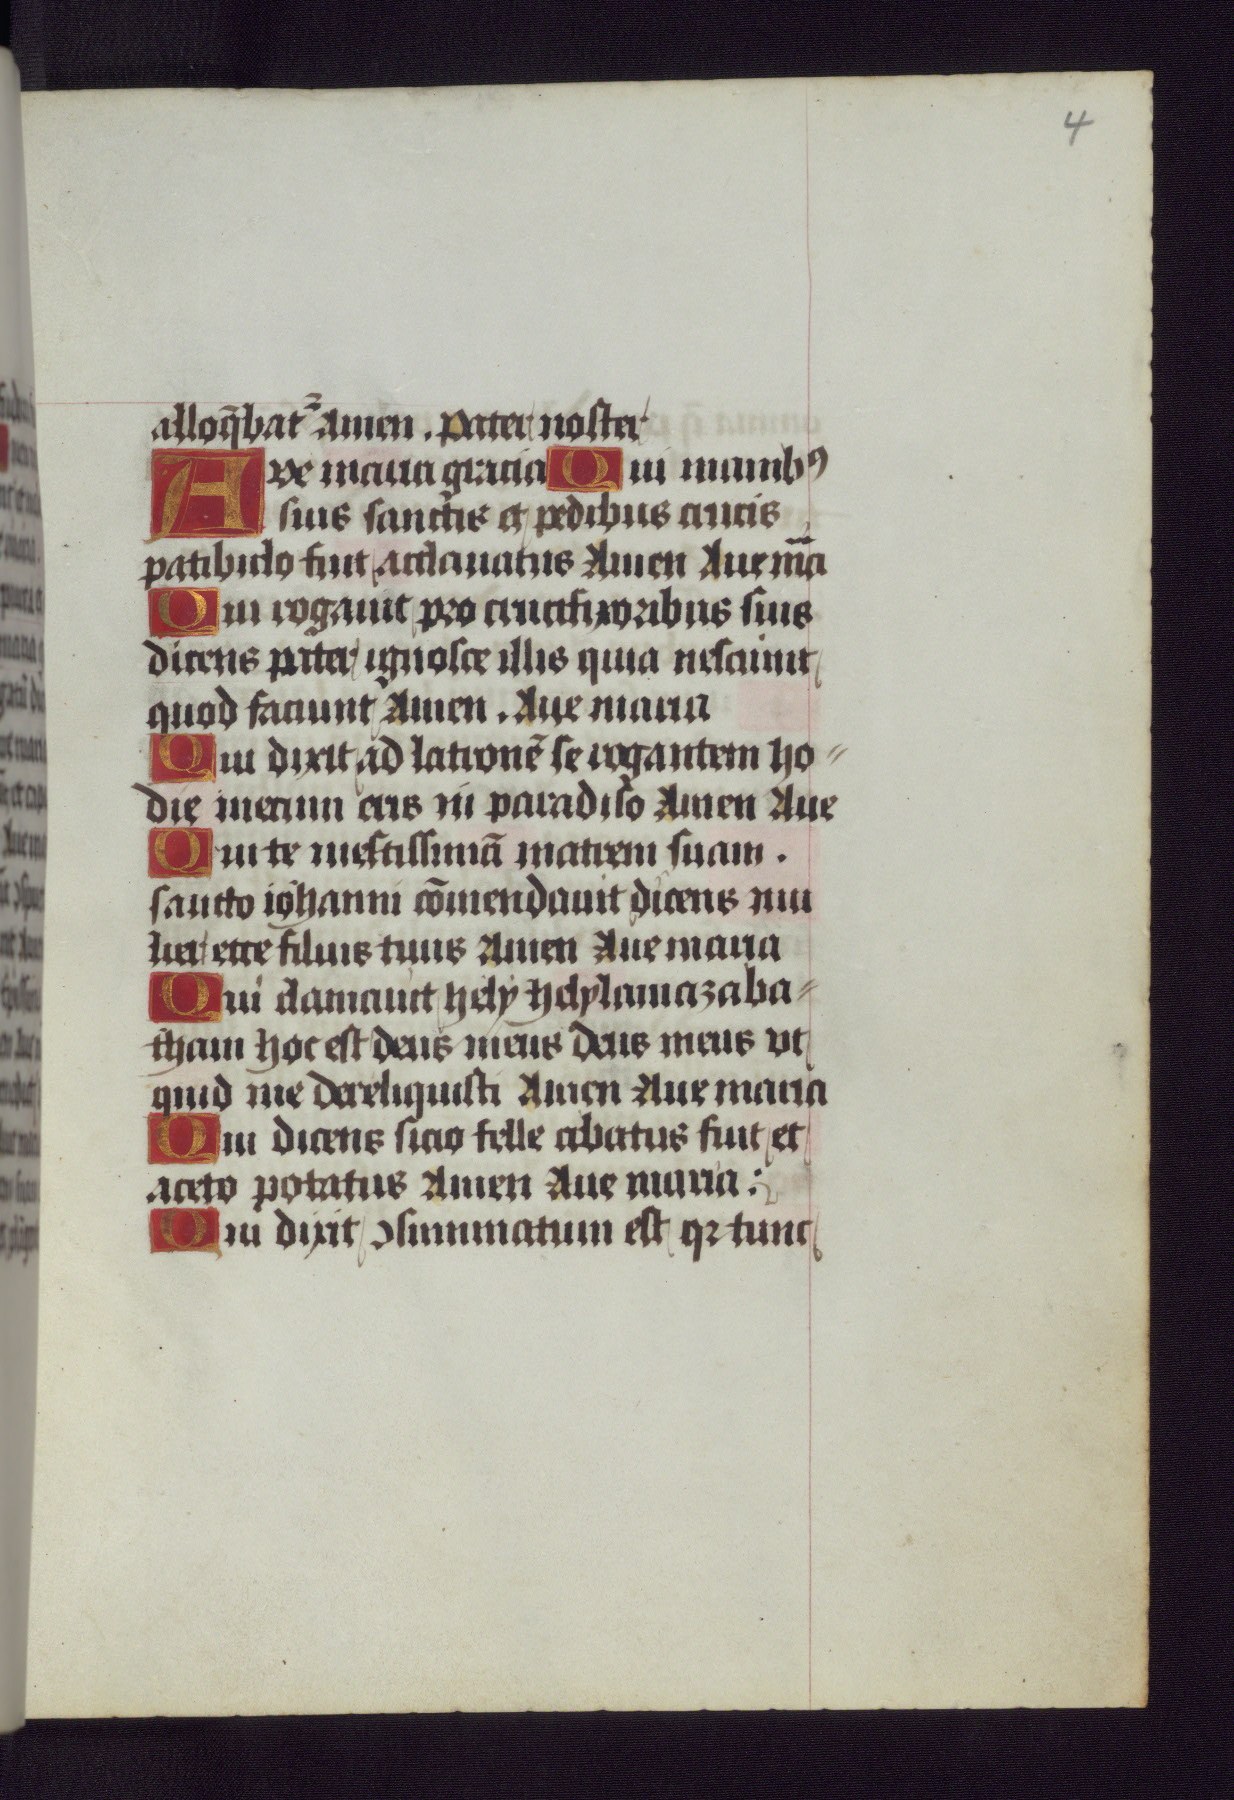 4
alloq̄bat᷑ Amen . Pater noster
Ave maria gracia Qui manibꝰ
suis sanctis et pedibus crucis
patibulo fuit acclauatus Amen Aue mīa
Qui rogauit pro crucifixoribus suis
dicens pater ignosce illis quia nesciunt
quod faciunt Amen . Aue maria
Qui dixit ad latronē se rogantem ho-
die mecum eris in paradiso Amen Aue
Qui te mestissimā matrem suam .
sancto iohanni cōmendauit dicens mu
lier ecce filius tuus Amen Aue maria
Qui clamauit hely hely lamazaba-
tham hoc est deus meus deus meus vt
quid me dereliquisti Amen Aue maria
Qui dicens sicio felle cibatus fuit et
aceto potatus Amen Aue maria :
Qui dixit ꝯsummatum est qꝛ tunc